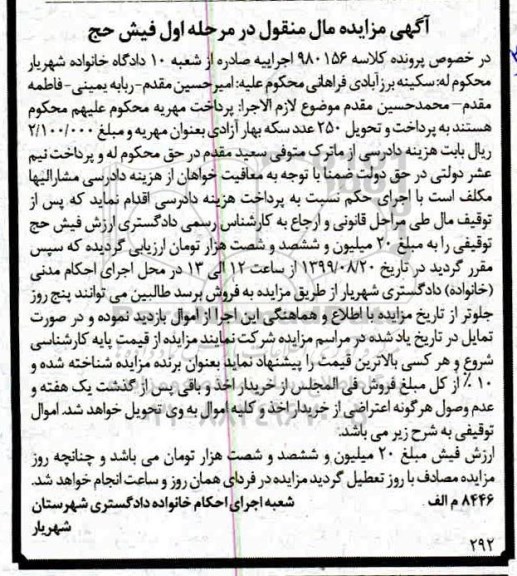 آگهی مزایده مال منقول در مرحله اول فیش حج
در خصوص پرونده کلاسه ۹۸۰۱۵۶ اجراییه صادره از شعبه ۱۰ دادگاه خانواده شهریار
محکوم له: سکینه برزآبادی فراهانی محکوم علیه: امیرحسین مقدم-ربابه یمینی-فاطمه
مقدم- محمدحسین مقدم موضوع لازم الاجرا: پرداخت مهریه محکوم علیهم محکوم
هستند به پرداخت و تحویل ۲۵۰ عدد سکه بهار آزادی بعنوان مهریه و مبلغ ۲/۱۰۰/۰۰۰
ریال بابت هزینه دادرسی از ماترک متوفی سعید مقدم در حق محکوم له و پرداخت نیم
عشر دولتی در حق دولت ضمنا با توجه به معافیت خواهان از هزینه دادرسی مشارالیها
مکلف است با اجرای حکم نسبت به پرداخت هزینه دادرسی اقدام نماید که پس از
توقیف مال طی مراحل قانونی و ارجاع به کارشناس رسمی دادگستری ارزش فیش حج
توقیفی را به مبلغ ۲۰ میلیون و ششصد و شصت هزار تومان ارزیابی گردیده که سپس
مقرر گردید در تاریخ ۱۳۹۹/۰۸/۲۰ از ساعت ۱۲ الی ۱۳ در محل اجرای احکام مدنی
(خانواده) دادگستری شهریار از طریق مزایده به فروش برسد طالبین می توانند پنج روز
جلوتر از تاریخ مزایده با اطلاع و هماهنگی این اجرا از اموال بازدید نموده و در صورت
تمایل در تاریخ یاد شده در مراسم مزایده شرکت نمایند مزایده از قیمت پایه کارشناسی
شروع و هر کسی بالاترین قیمت را پیشنهاد نماید بعنوان برنده مزایده شناخته شده و
۱۰ ٪ از کل مبلغ فروش فی المجلس از خریدار اخذ و باقی پس از گذشت یک هفته و
عدم وصول هرگونه اعتراضی از خریدار اخذ و کلیه اموال به وی تحویل خواهد شد. اموال
توقیفی به شرح زیر می باشد.
ارزش فیش مبلغ ۲۰ میلیون و ششصد و شصت هزار تومان می باشد و چنانچه روز
مزایده مصادف با روز تعطیل گردید مزایده در فردای همان روز و ساعت انجام خواهد شد.
۸۴۴۶ م الف شعبه اجرای احکام خانواده دادگستری شهرستان
شهریار
۲۹۲